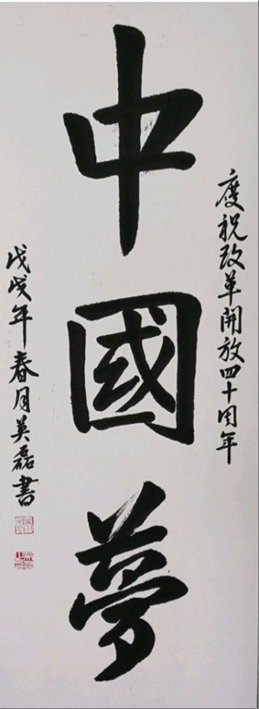 慶祝改革開放四十周年
中國夢
戊戌年春月英磊書